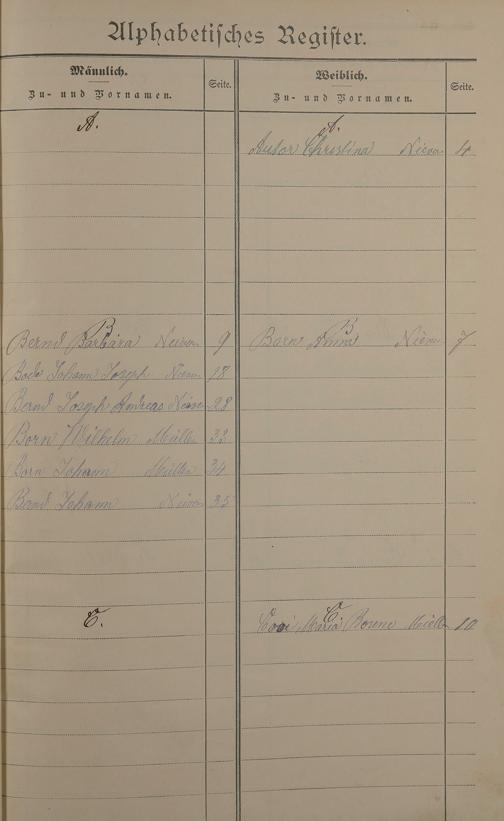 Alphabetisches Register.
Männlich.
Zu- und Vornamen.
Seite.
Weiblich.
Zu- und Vornamen.
Seite.
A.
A.
Autor Christina 4
B
B
Bernd Barbara 9
Born Anna 7
Bode Johann Joseph 18
Bernd Joseph Andreas 28
Born Wilhelm Müller 33
Born Johann Müller 34
Bernd Johann 35
C.
C.
Maria 10